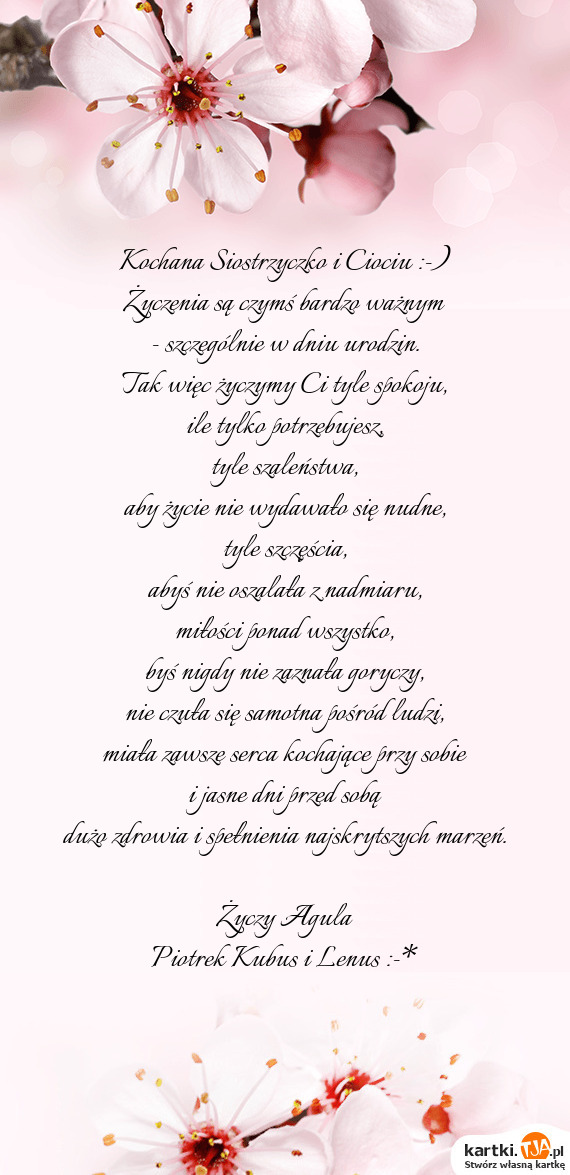 Kochana Siostrzyczko i Ciociu :-)
Życzenia są czymś bardzo ważnym
- szczególnie w dniu urodzin.
Tak więc życzymy Ci tyle spokoju,
ile tylko potrzebujesz,
tyle szaleństwa,
aby życie nie wydawało się nudne,
tyle szczęścia,
abyś nie oszalała z nadmiaru,
miłości ponad wszystko,
byś nigdy nie zaznała goryczy,
nie czuła się samotna pośród ludzi,
miała zawsze serca kochające przy sobie
i jasne dni przed sobą
dużo zdrowia i spełnienia najskrytszych marzeń.
Życzy Agula
Piotrek Kubus i Lenus :-*
kartki.TJA.pl
Stwórz własną kartkę